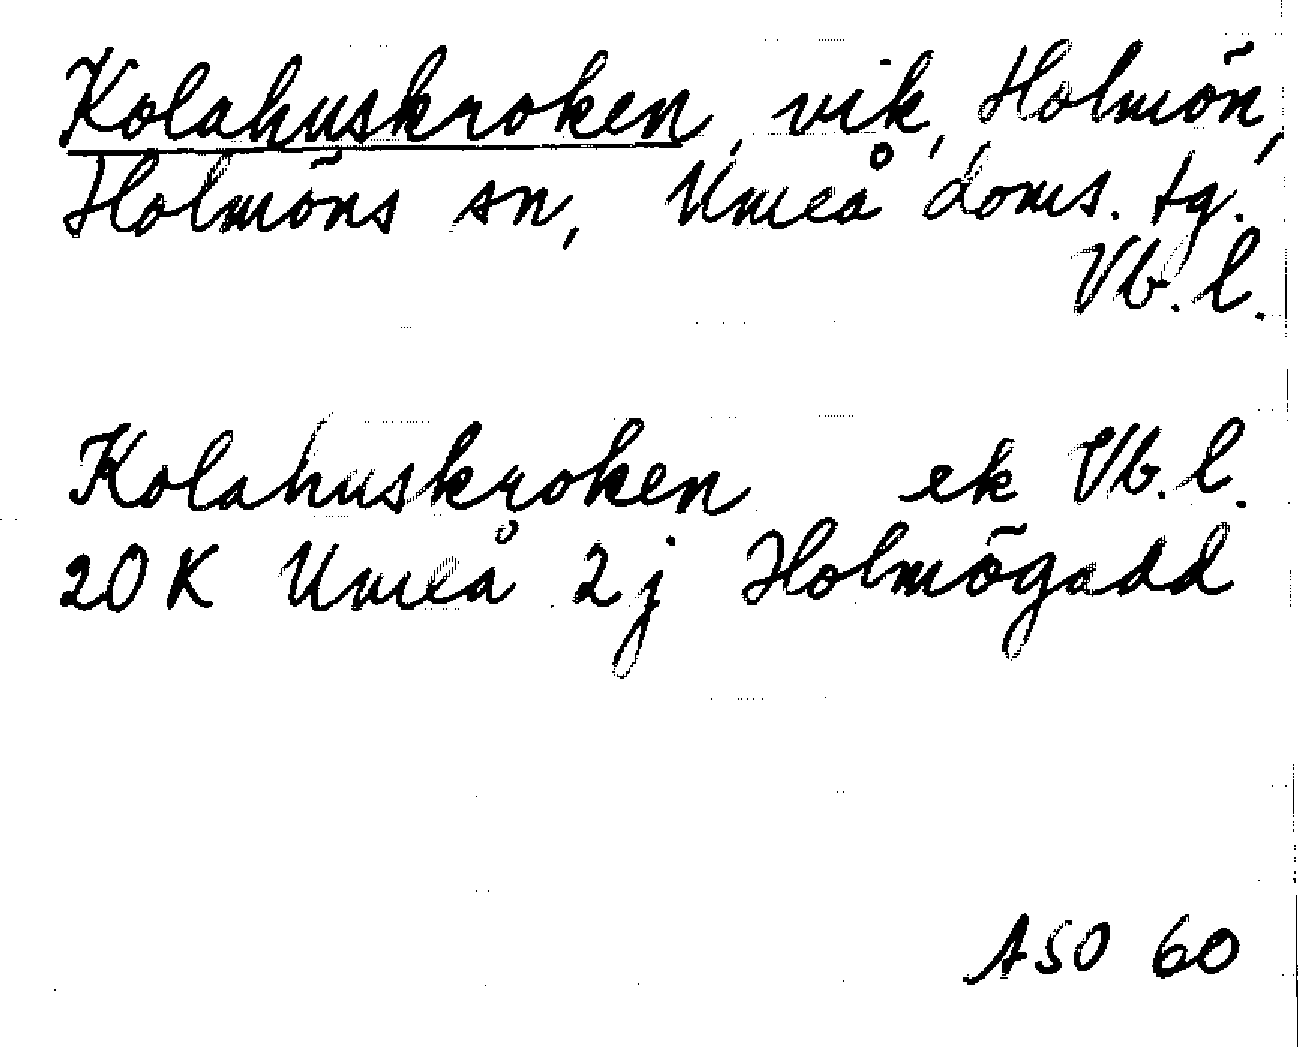 Kolahuskroken, vik, Holmön,
Holmöns sn, Umeå doms. tg.
Vb. l.
Kolahuskroken ek Vb. l.
20 K Umeå 2j Holmögadd
ASO 60